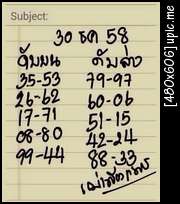 Subject:
30 ธค 58
ดับบน ดับล่าง
35-53 79-97
26-62 60-06
17-71 51-15
08-80 42-24
99-44 88-33
[480x606]upic.me